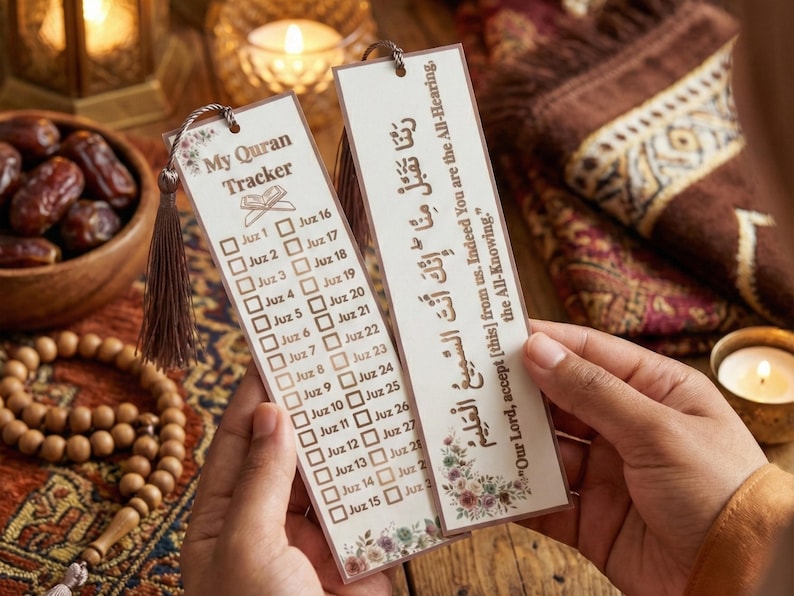 My Quran
Tracker
Juz 1
Juz 2
Juz 3
Juz 4
Juz 5
Juz 6
Juz 7
Juz 8
Juz 9
Juz 10
Juz 11
Juz 12
Juz 13
Juz 14
Juz 15
Juz 16
Juz 17
Juz 18
Juz 19
Juz 20
Juz 21
Juz 22
Juz 23
Juz 24
Juz 25
Juz 26
Juz 27
Juz
Juz 2
Juz
رَبَّنَا تَقَبَّلْ مِنَّا ۖ إِنَّكَ أَنْتَ السَّمِيعُ الْعَلِيمُ
"Our Lord, accept [this] from us. Indeed You are the All-Hearing,
the All-Knowing."